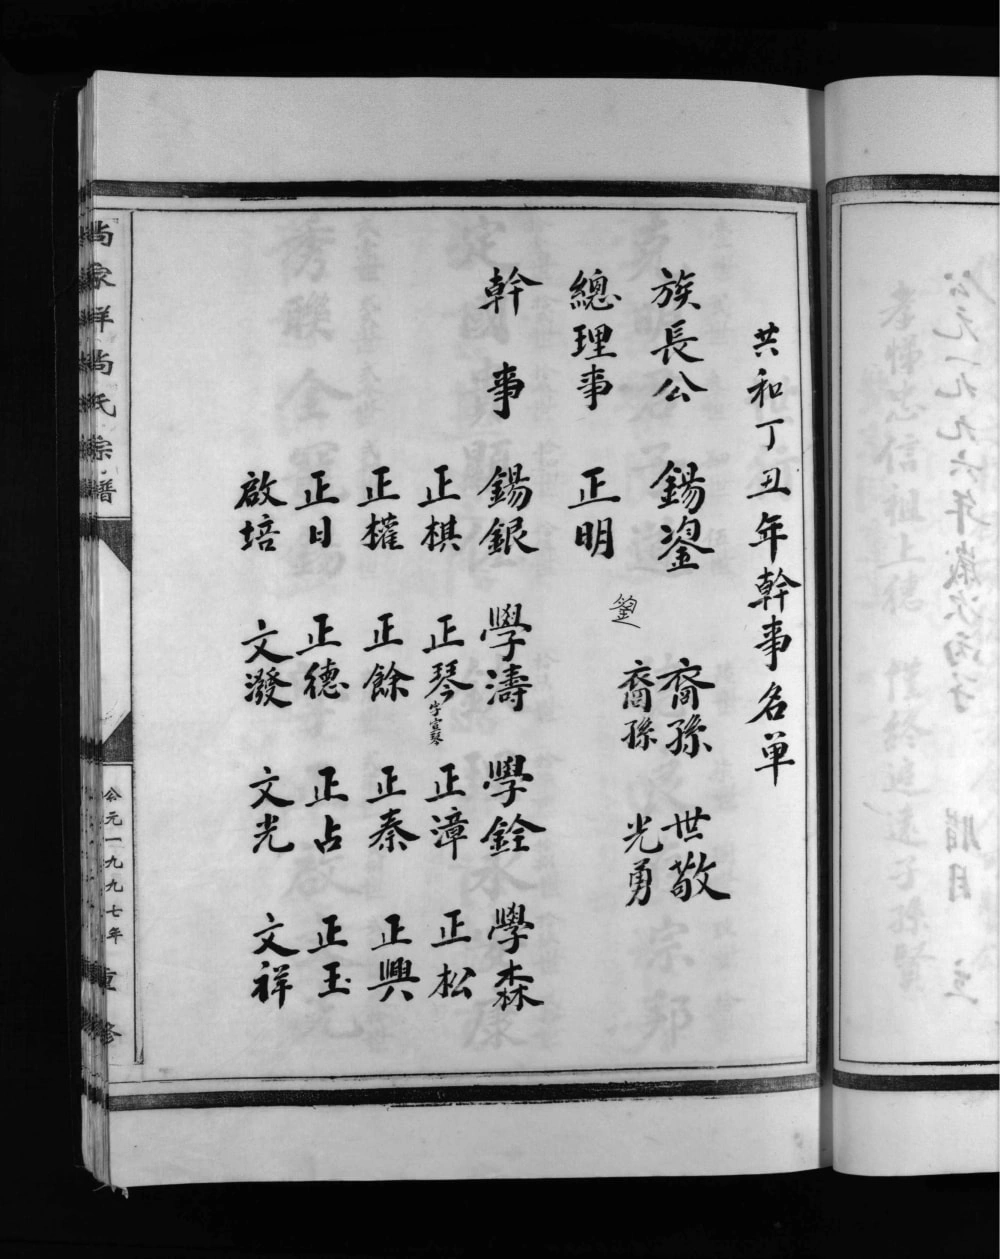 共和丁丑年幹事名单
族長公 錫鋆 裔孫 世敬
裔孫 光勇
總理事 正明
幹事 錫銀 學濤 學銓 學森
正棋 正琴 字宣琴 正漳 正松
正權 正餘 正秦 正興
正日 正德 正占 正玉
啟培 文潑 文光 文祥
尚家祥尚氏宗譜
公元一九九七年 重修